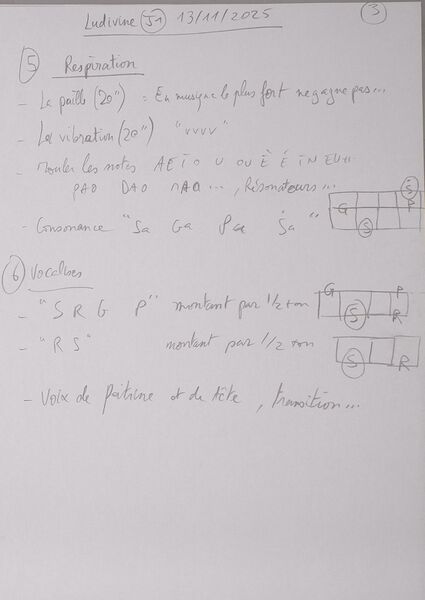 Ludivine J1 13/11/2025 3
5 Respiration
- La paille (20") = En musique le plus fort ne gagne pas...
- La vibration (20") "vvvv"
- Mouler les notes A E I O U OU È É IN EU
PAO DAO MAO..., Résonateurs...
- Consonance "Sa Ga Pa Ṡa"
Ṡ
G P
S
6 Vocalises
- "S R G P" montant par 1/2 ton
G P
S R
- "R S" montant par 1/2 ton
S R
- Voix de Poitrine et de tête, transition...